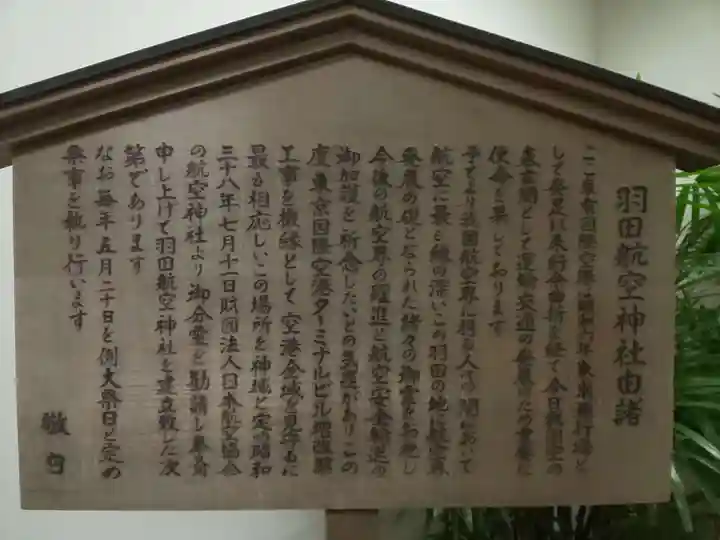 羽田航空神社由諸
ここ東京国際空港は昭和六年東京飛行場と
して発足以来幾多曲折を経て今日我国空の
表玄関として運輸交通の発展のため重要な
使命を果しております
予てより我国航空界に携る人々の間において
航空に最も縁の深いこの羽田の地に航空界
発展の礎となられた幾多の御霊をお祀し
今後の航空界の躍進と航空安全輸送の
御加護を祈念したいとの気運がありこの
度東京国際空港ターミナルビル増改築
工事を機縁として空港全域を見守るに
最も相応しいこの場所を神域と定め昭和
三十八年七月十一日財団法人日本航空協会
の航空神社より御分霊を勧請し奉斎
申し上げて羽田航空神社を建立致した次
第であります
なお毎年五月二十日を例大祭日と定め
祭事を執り行います
敬白